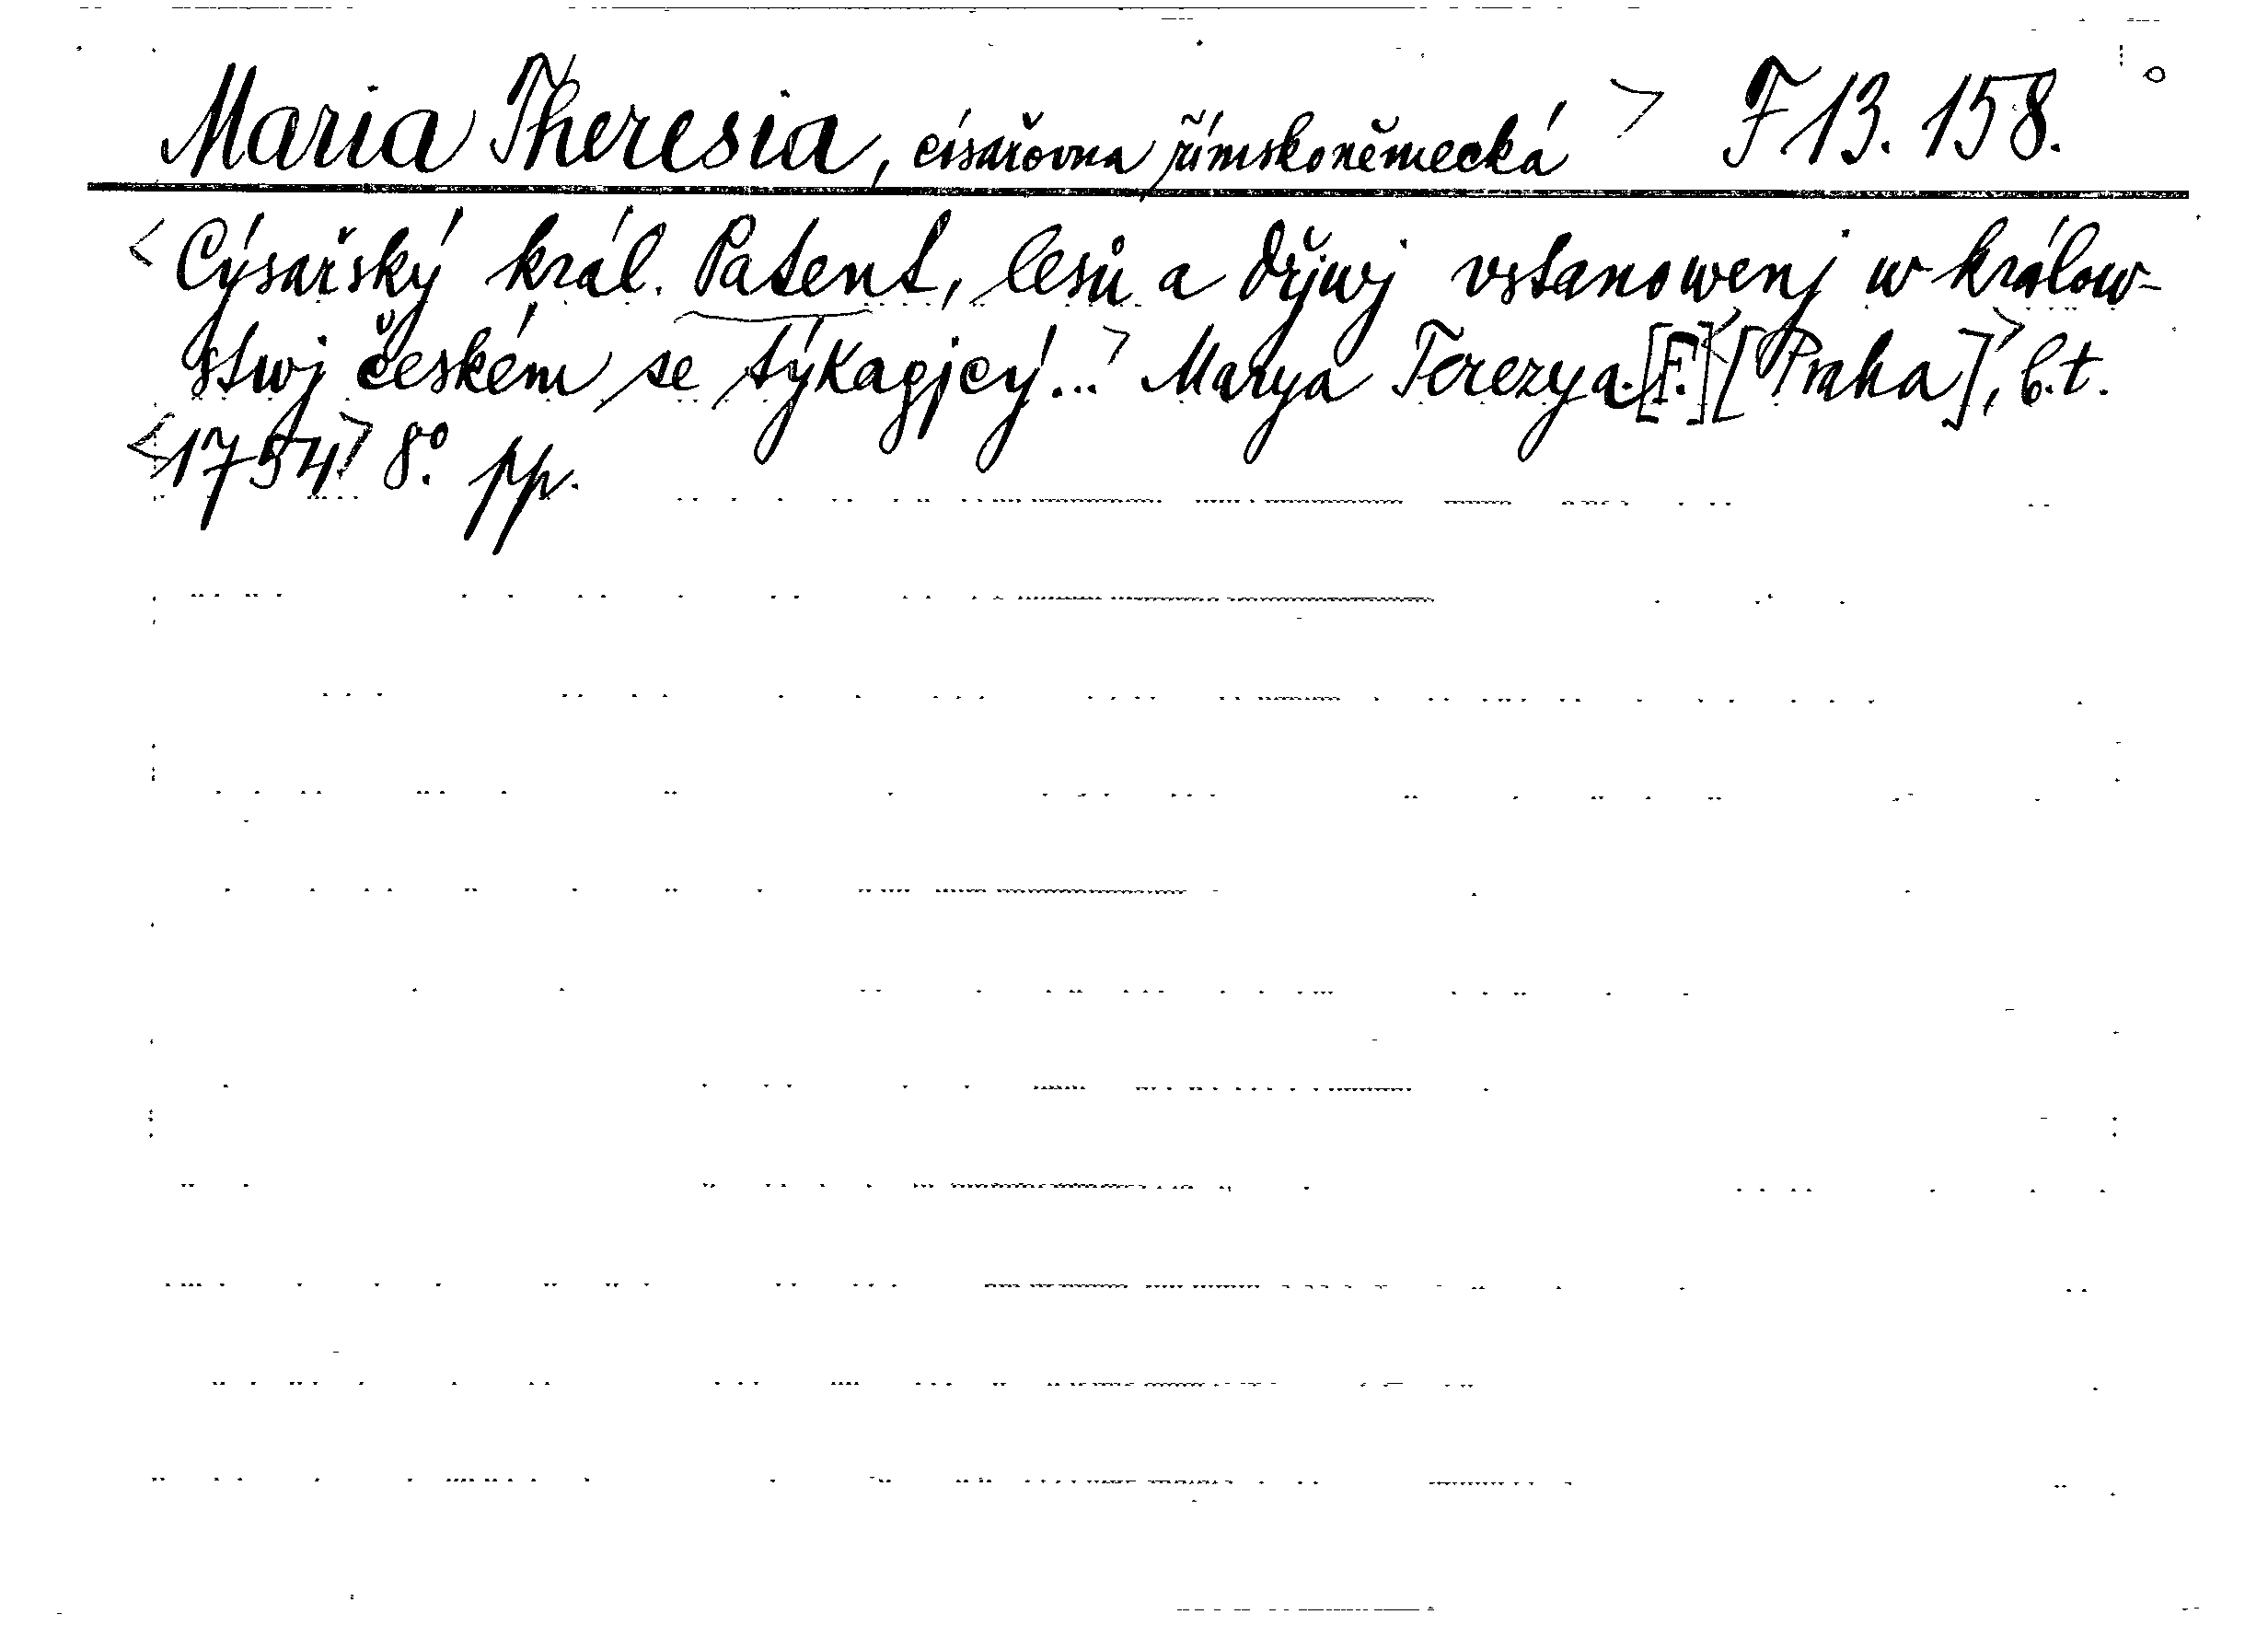 Maria Theresia, císařovna římskoněmecká > F 13. 158.
<Cýsařský král. Patent, lesů a dřjwj vstanowenj w králow-
stwj českém se týkagjcý...> Marya Terezya. [F.] <[Praha]>, b.t.
<1754> 8°. pp.